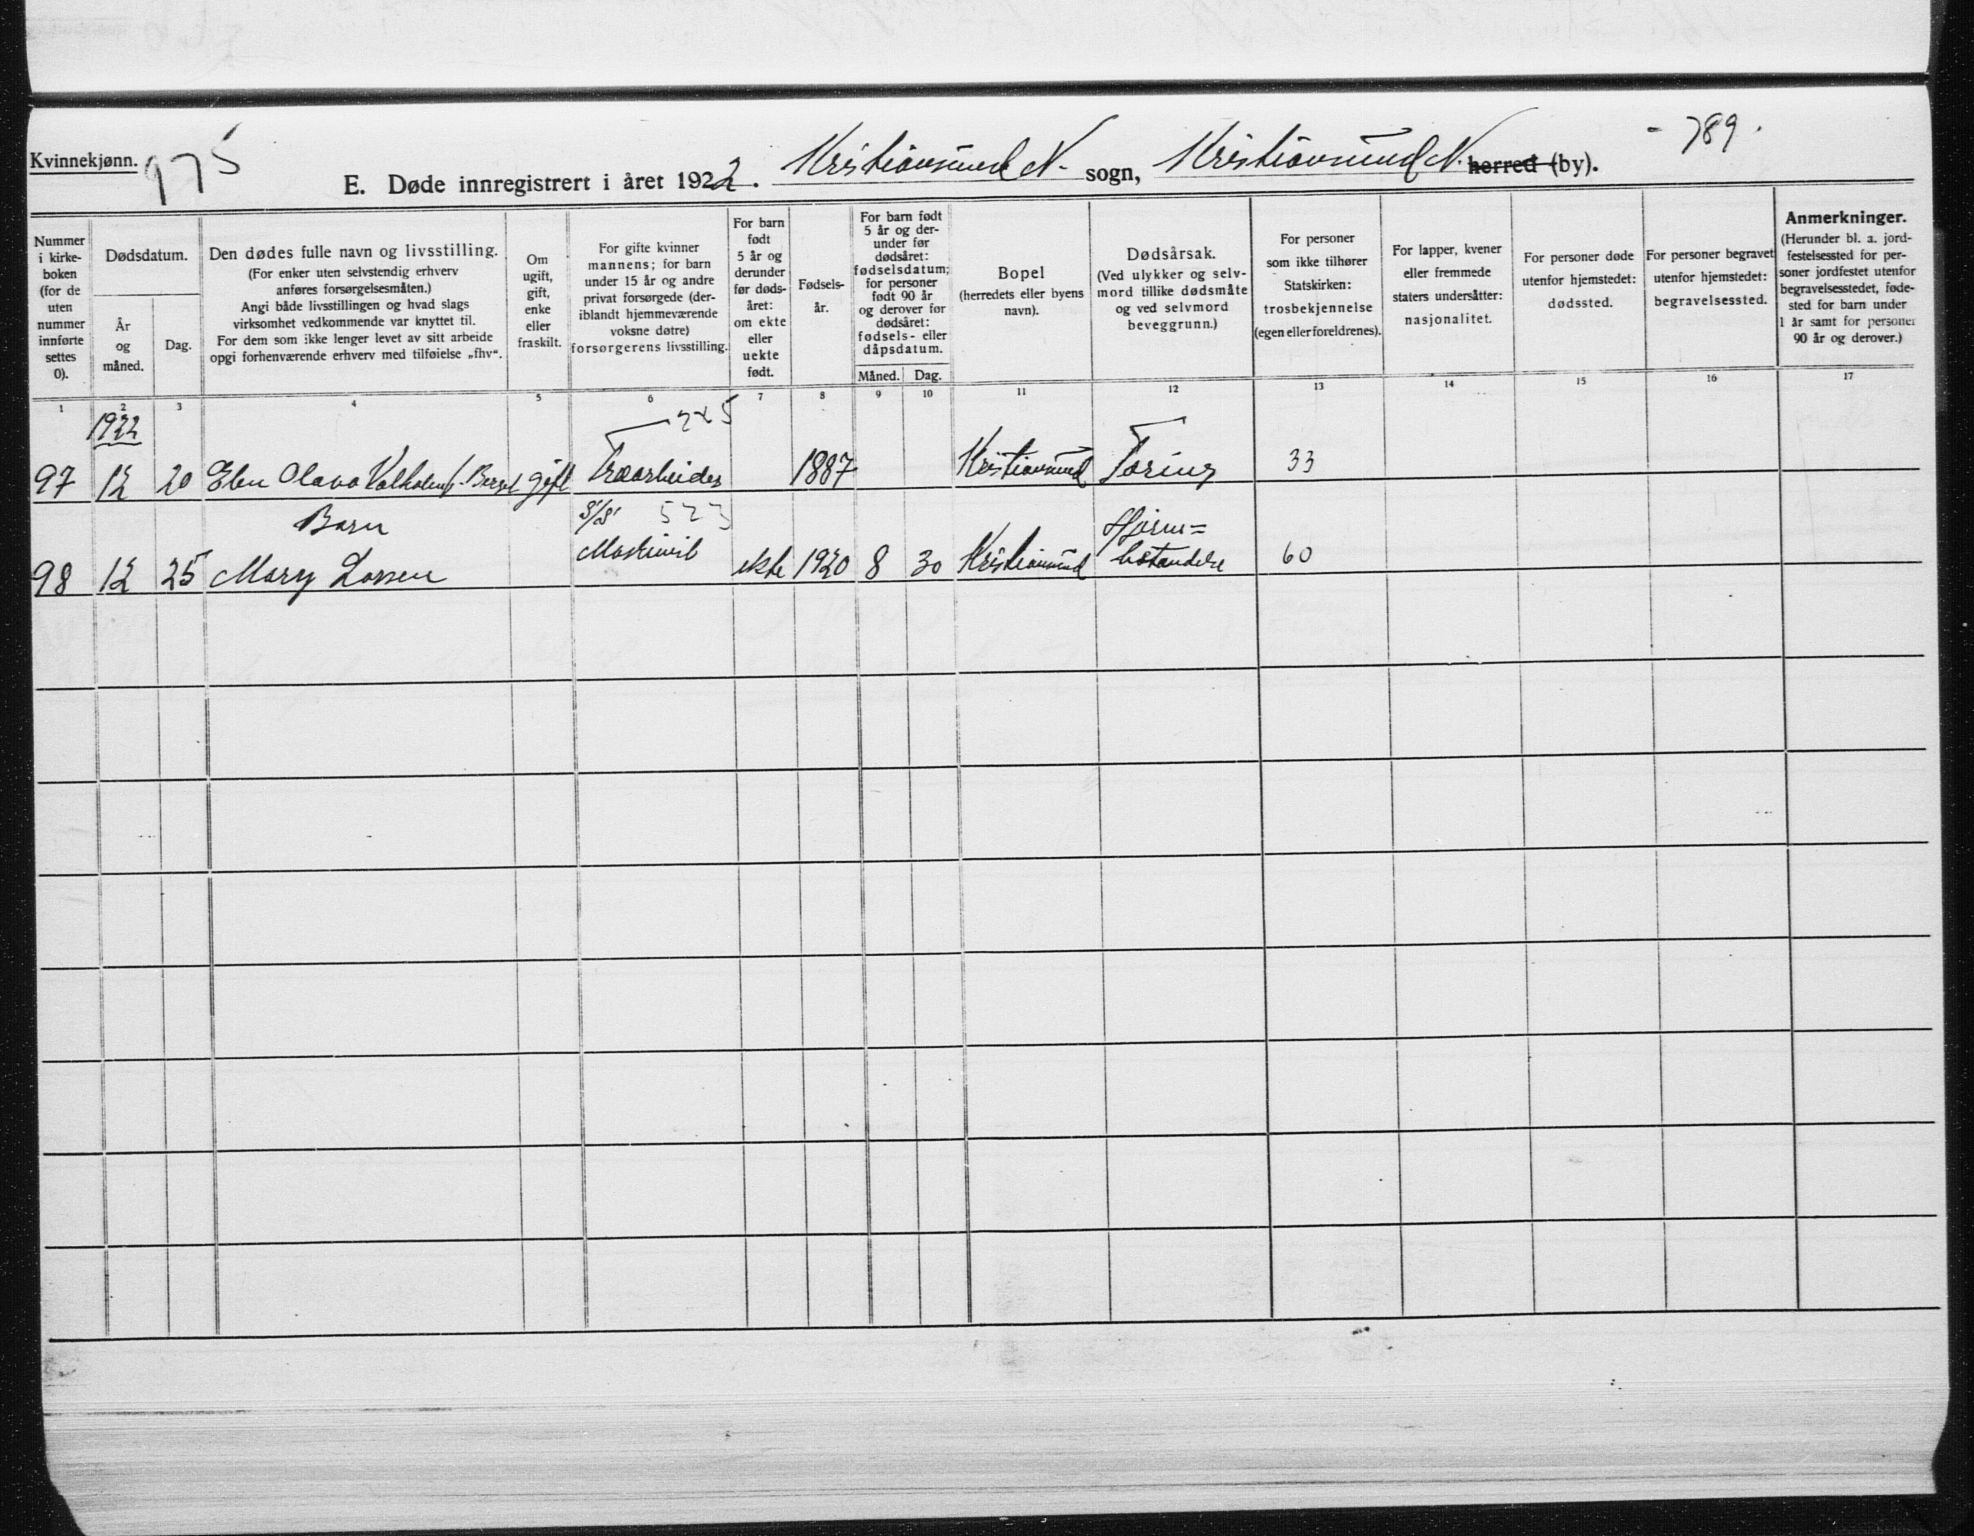 Kvinnekjønn.
975
E. Døde innregistrert i året 1922. Kristiansund N. sogn, Kristiansund N. herred (by).
- 789.
Nummer
i kirke-
boken
(for de
uten
nummer
innførte
settes
0).
Dødsdatum.
År
og
måned.
Dag.
Den dødes fulle navn og livsstilling.
(For enker uten selvstendig erhverv
anføres forsørgelsesmåten.)
Angi både livsstillingen og hvad slags
virksomhet vedkommende var knyttet til.
For dem som ikke lenger levet av sitt arbeide
opgi forhenværende erhverv med tilføielse „fhv“.
Om
ugift,
gift,
enke
eller
fraskilt.
For gifte kvinner
mannens; for barn
under 15 år og andre
privat forsørgede (der-
iblandt hjemmeværende
voksne døtre)
forsørgerens livsstilling.
For barn
født
5 år og
derunder
før døds-
året:
om ekte
eller
uekte
født.
Fødsels-
år.
For barn født
5 år og der-
under før
dødsåret:
fødselsdatum;
for personer
født 90 år
og derover før
dødsåret:
fødsels- eller
dåpsdatum.
Måned.
Dag.
Bopel
(herredets eller byens
navn).
Dødsårsak.
(Ved ulykker og selv-
mord tillike dødsmåte
og ved selvmord
beveggrunn.)
For personer
som ikke tilhører
Statskirken:
trosbekjennelse
(egen eller foreldrenes).
For lapper, kvener
eller fremmede
staters undersåtter:
nasjonalitet.
For personer døde
utenfor hjemstedet:
dødssted.
For personer begravet
utenfor hjemstedet:
begravelsessted.
Anmerkninger.
(Herunder bl. a. jord-
festelsessted for per-
soner jordfestet utenfor
begravelsesstedet, føde-
sted for barn under
1 år samt for personer
90 år og derover.)
1 2 3 4 5 6 7 8 9 10 11 12 13 14 15 16 17
1922
225
97 12 20 Elen Olava gift Træarbeider 1887 Kristiansund Tæring 33
Barn
S/S 523
Hjerne=
98 12 25 Mary Larsen Maskinist ekte 1920 8 30 Kristiansund betændelse 60